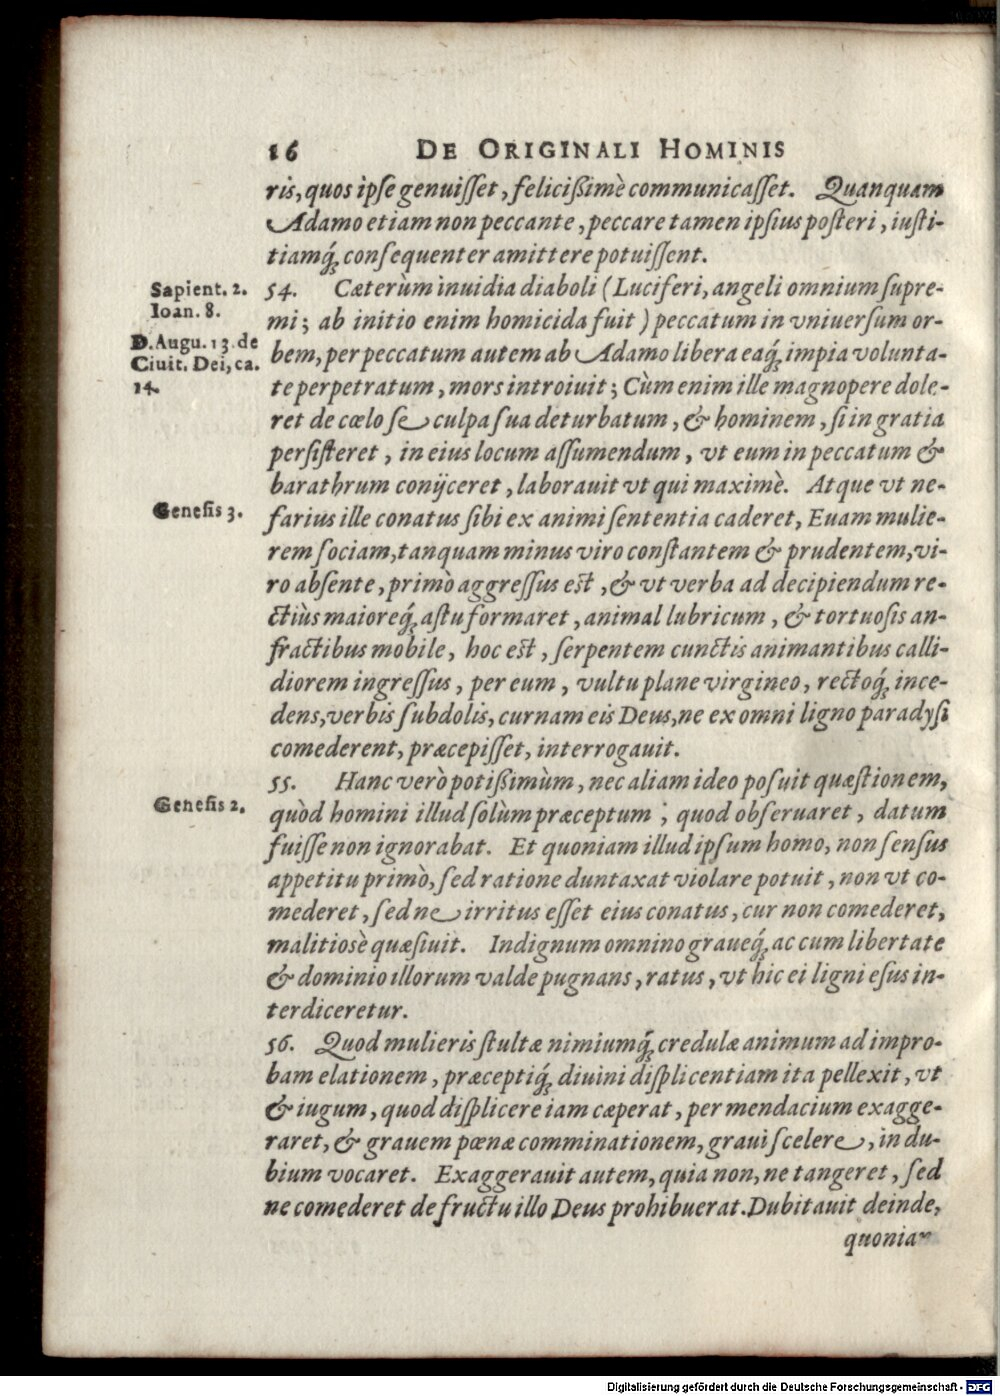 16 DE ORIGINALI HOMINIS
ris, quos ipse genuisset, felicißimè communicasset. Quanquam
Adamo etiam non peccante, peccare tamen ipsius posteri, iusti-
tiamq́; consequenter amittere potuissent.
Sapient. 2.
Ioan. 8.
D. Augu. 13. de
Ciuit. Dei, ca.
14.
54. Cæterùm inuidia diaboli (Luciferi, angeli omnium supre-
mi; ab initio enim homicida fuit) peccatum in vniuersum or-
bem, per peccatum autem ab Adamo libera eaq́; impia volunta-
te perpetratum, mors introiuit; Cùm enim ille magnopere dole-
ret de cœlo se culpa sua deturbatum, & hominem, si in gratia
persisteret, in eius locum assumendum, vt eum in peccatum &
barathrum conijceret, laborauit vt qui maximè. Atque vt ne-
Genesis 3.
farius ille conatus sibi ex animi sententia caderet, Euam mulie-
rem sociam, tanquam minus viro constantem & prudentem, vi-
ro absente, primò aggressus est, & vt verba ad decipiendum re-
ctiùs maioreq́; astu formaret, animal lubricum, & tortuosis an-
fractibus mobile, hoc est, serpentem cunctis animantibus calli-
diorem ingressus, per eum, vultu plane virgineo, rectoq́; ince-
dens, verbis subdolis, curnam eis Deus, ne ex omni ligno paradysi
comederent, præcepisset, interrogauit.
55. Hanc verò potißimùm, nec aliam ideo posuit quæstionem,
Genesis 2.
quòd homini illud solùm præceptum; quod obseruaret, datum
fuisse non ignorabat. Et quoniam illud ipsum homo, non sensus
appetitu primò, sed ratione duntaxat violare potuit, non vt co-
mederet, sed ne irritus esset eius conatus, cur non comederet,
malitiosè quæsiuit. Indignum omnino graueq́; ac cum libertate
& dominio illorum valde pugnans, ratus, vt hic ei ligni esus in-
terdiceretur.
56. Quod mulieris stultæ nimiumq́; credulæ animum ad impro-
bam elationem, præceptiq́; diuini displicentiam ita pellexit, vt
& iugum, quod displicere iam cæperat, per mendacium exagge-
raret, & grauem pœnæ comminationem, graui scelere, in du-
bium vocaret. Exaggerauit autem, quia non, ne tangeret, sed
ne comederet de fructu illo Deus prohibuerat. Dubitauit deinde,
quoniam
Digitalisierung gefördert durch die Deutsche Forschungsgemeinschaft - DFG